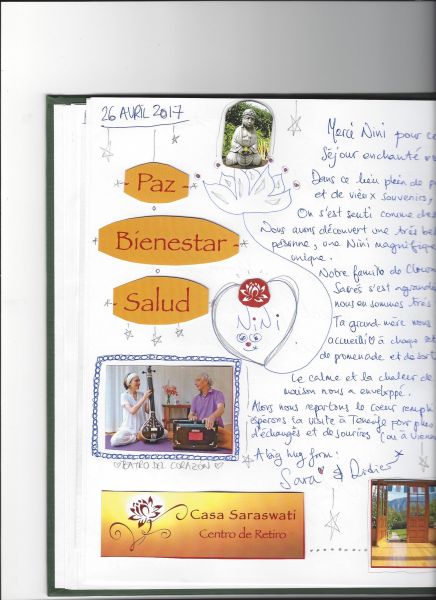 26 AVRIL 2017
- Paz -
Bienestar -
Salud
NiNi
TEATRO DEL CORAZÓN
Casa Saraswati
Centro de Retiro
Merci Nini pour ce
Séjour enchanté
Dans ce lieu plein de
et de vieux souvenirs,
On s'est senti comme chez
Nous avons découvert une très belle
personne, une Nini magnifique
unique.
Notre famille de
s'est
nous en sommes très
Ta grand-mère nous
accueilli à chaque
de promenade et de
Le calme et la chaleur de
maison nous a enveloppé.
Alors nous repartons le coeur rempli
espérons ta visite à Tenerife pour plus
d'échanges et de sourires (ou à Vienne
A big hug from:
Sara & Didier